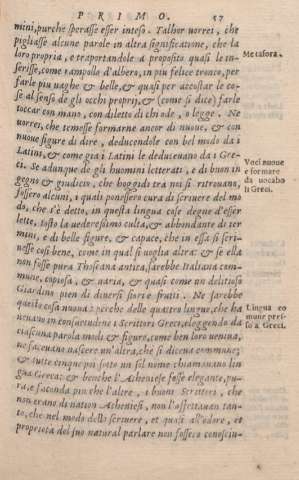 PRIMO. 57
mini, purche sperasse esser inteso. Talhor uorrei, che
pigliasse alcune parole in altra significatione, che la
loro propria, e traportandole a proposito quasi le in-
Metafora.
serisse, come rampollo d'albero, in piu felice tronco, per
farle piu uaghe & belle, & quasi per accostar le co-
se al senso de gli occhi proprij, & (come si dice) farle
toccar con mano, con diletto di chi ode, o legge. Ne
uorrei, che temesse formarne ancor di nuoue, & con
nuoue figure di dire, deducendole con bel modo da i
Latini, & come già i Latini le deduceuano da i Gre-
ci. Se adunque de gli huomini letterati, e di buon in
Voci nuoue
e formare
da uocabo
li Greci.
gegno & giudicio, che hoggidi tra noi si ritrouano,
fossero alcuni, i quali ponessero cura di scriuere del mo
do, che s'è detto, in questa lingua cose degne d'esser
lette, tosto la uederessimo culta, & abbondante di ter
mini, e di belle figure, & capace, che in essa si scri-
uesse cosi bene, come in qual si uoglia altra: & se ella
non fosse pura Thoscana antica, sarebbe Italiana com-
mune, copiosa, & uaria, & quasi come un delitioso
Giardino pien di diuersi fiori e frutti. Ne sarebbe
questo cosa nuoua: perche delle quattro lingue, che ha
Lingua co
mune pres-
so a Greci.
ueano in consuetudine i Scrittori Greci, eleggendo da
ciascuna parola modi & figure, come ben loro ueniua,
ne faceuano nascere un'altra, che si diceua commune:
& tutte cinque poi sotto un sol nome chiamauano lin
gua Greca: & benche l'Acheniese fosse elegante, pu-
ra, e faconda piu che l'altre, i buoni Scrittori, che
non erano di nation Acheniesi, non l'affettauan tan-
to, che nel modo dello scriuere, et quasi all'odore, et
proprietà del suo natural parlare non fossero conosciu-